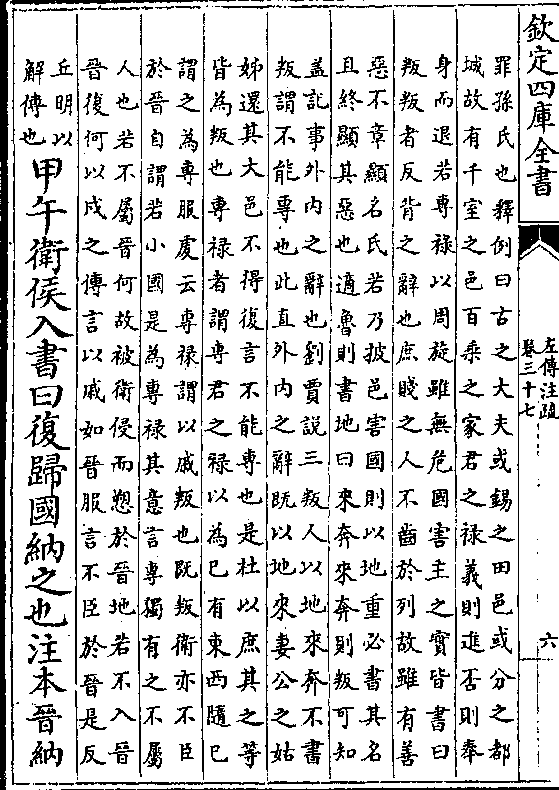 欽定四庫全書
左傳注疏
卷三十七
六
罪孫氏也釋例曰古之大夫或錫之田邑或分之都
城故有千室之邑百乘之家君之禄義則進否則奉
身而退若專禄以周旋雖無危國害主之實皆書曰
叛叛者反背之辭也庶賤之人不齒於列故雖有善
惡不章顯名氏若乃披邑害國則以地重必書其名
且終顯其惡也適魯則書地曰來奔來奔則叛可知
盖記事外内之辭也劉賈說三叛人以地來奔不書
叛謂不能專也此直外内之辭既以地來妻公之姑
姊還其大邑不得復言不能專也是杜以庶其之等
皆為叛也專禄者謂專君之禄以為已有東西隨已
謂之為專服虔云專禄謂以戚叛也既叛衛亦不臣
於晉自謂若小國是為專禄其意言專獨有之不屬
人也若不屬晉何故被衛侵而愬於晉地若不入晉
晉復何以戍之傳言以戚如晉服言不臣於晉是反
丘明以
解傳也
甲午衛侯入書曰復歸國納之也注本晉納